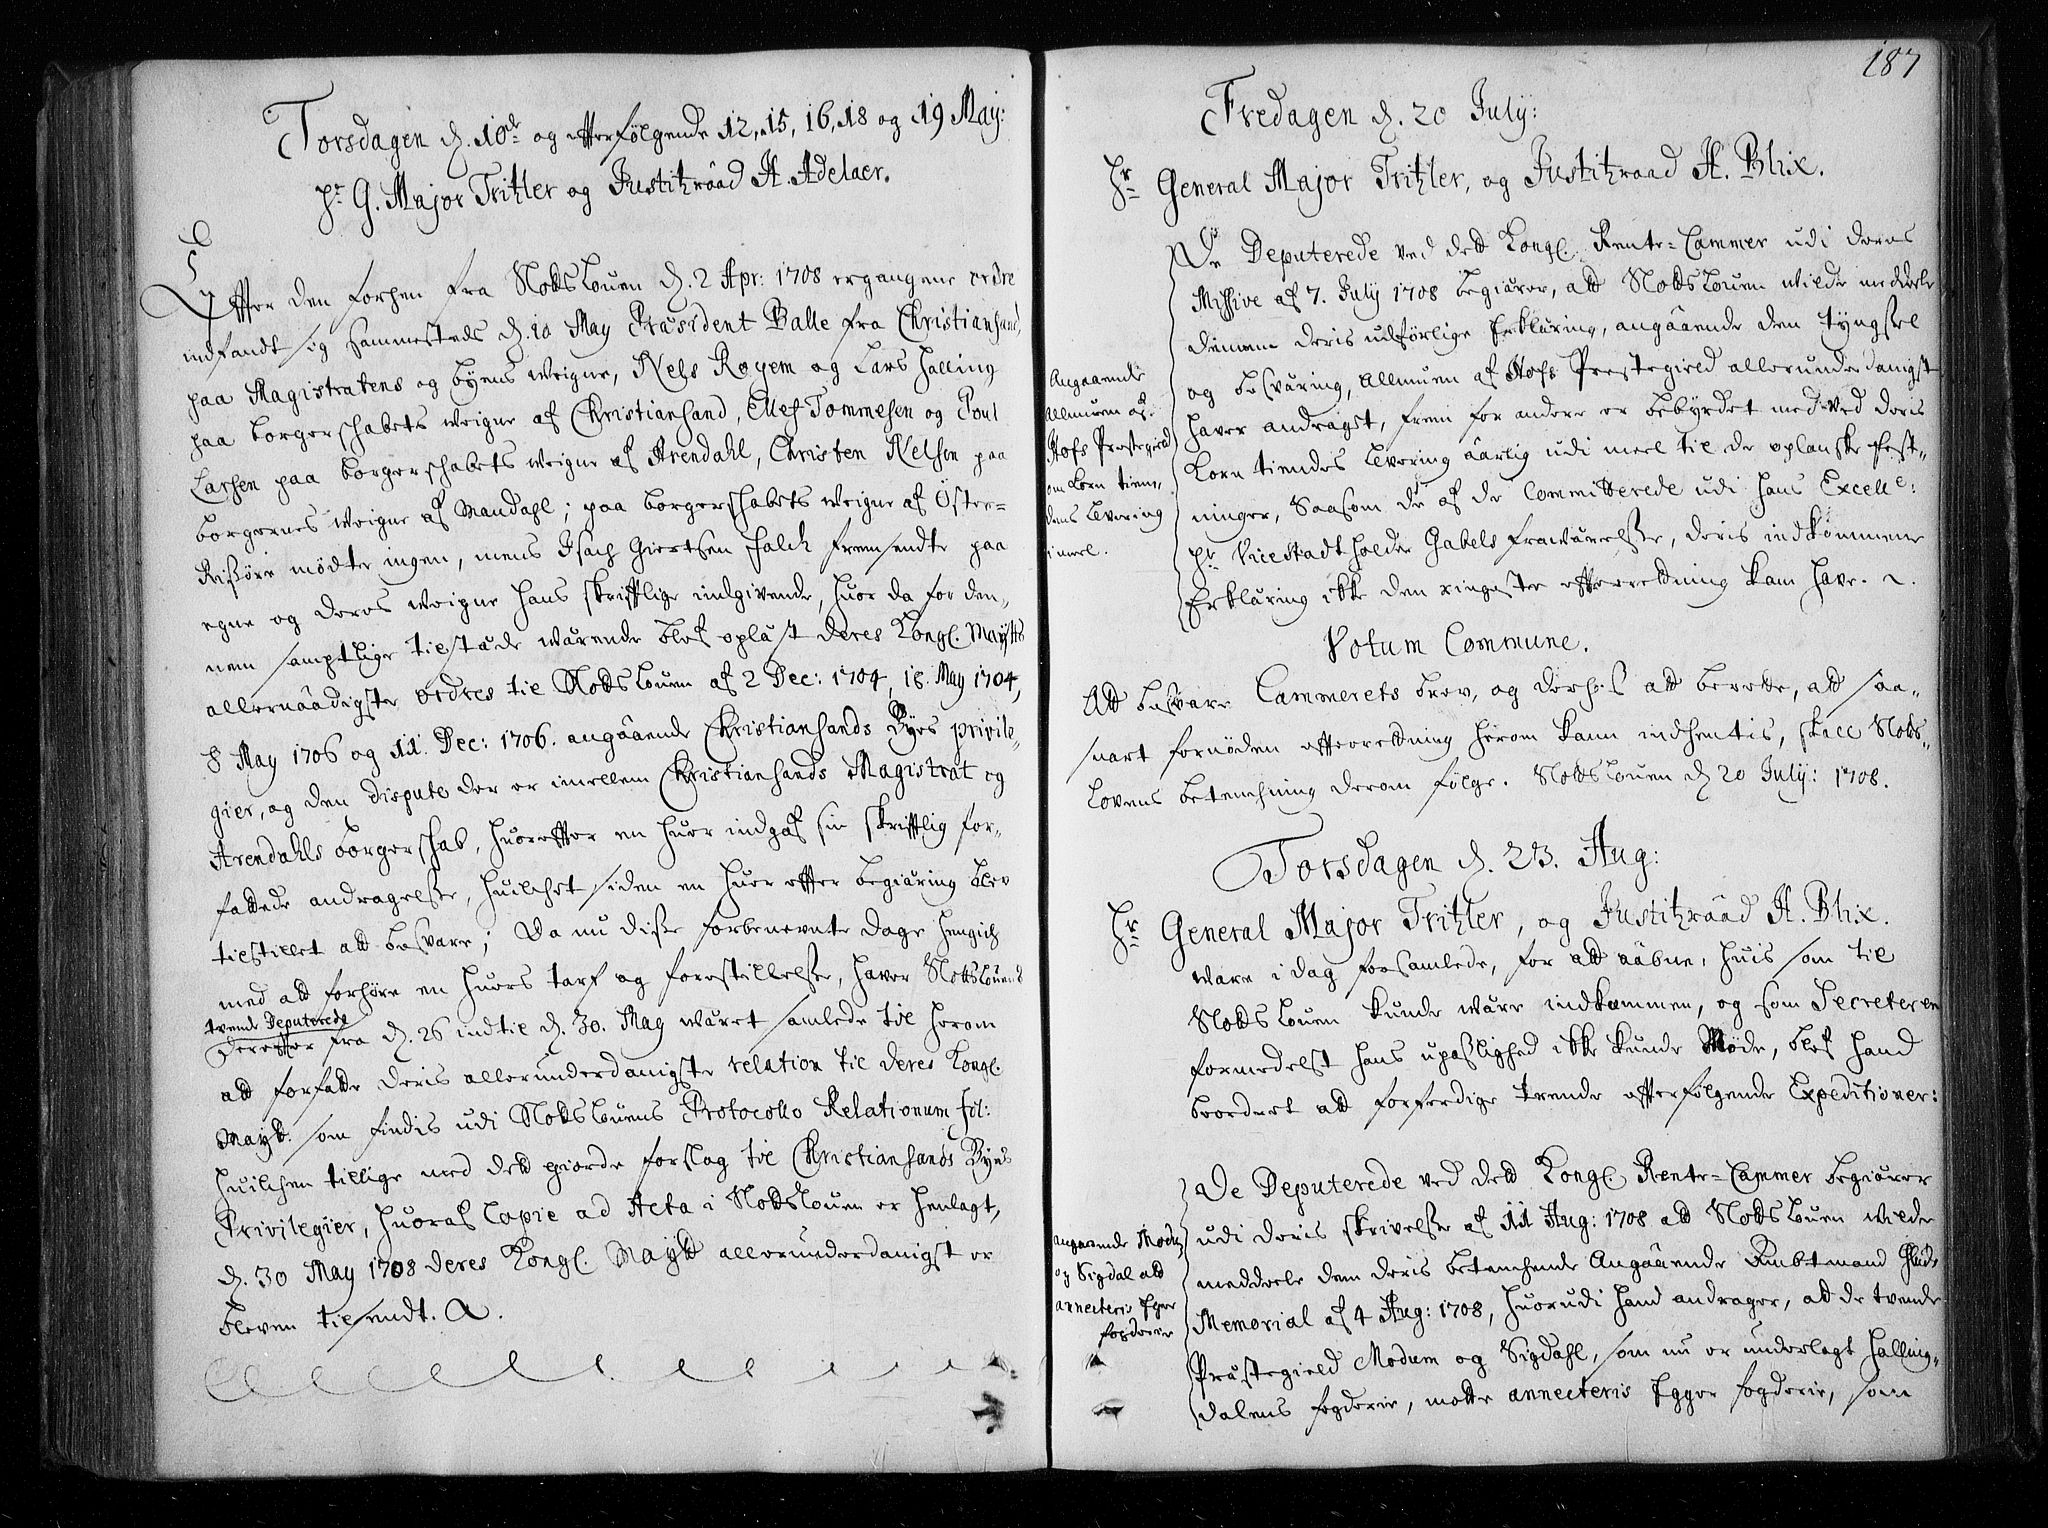 Torsdagen d. 10de og efterfølgende 12, 15, 16, 18 og 19 May:
Hr G. Major Tritzler og Justitzraad H. Adelaer.
Effter den forhen fra Slottslouen d. 2 Apr: 1708 ergangene ordre
indfandt sig sammesteds d. 10 May Præsident Balle fra Christiansand,
paa Magistratens og byens weigne, Nels Royem og Lars Halling
paa borgerschabets weigne af Christiansand, Ellef Tommesen og Poul
Larsen paa borgerschabets weigne af Arendahl, Christen Nelsen paa
borgernes weigne af Mandahl; paa borgerschabets weigne af Øster-
Risiöer mødte ingen, mens Isach Giertsen Falck fremsendte paa
egne og deres weigne hans skrifftlige indgivende, huor da for den-
nem samptlige tilstæde wærende blef oplæst deres Kongl. Maytts
allernaadigste ordres til Slottslouen af 2 Dec: 1704, 18. May 1704,
8 May 1706 og 11. Dec: 1706. angaaende Christiansands Byes privile-
gier, og den dispute der er imellem Christiansands Magistrat og
Arendahls borgerschab, huoreffter en huer indgaf sin skrifftlig for-
fattede andragelse, huilchet siden en huer effter begiæring blev
tilstillet att besvare; Da nu disse forbenevnte dage hengich
med att forhøre en huers tarf og forestillelse, haver Slottslouens
tvende Deputerede
derefter fra d. 26 indtil d. 30. May wæret samlede til herom
att forfatte deris allerunderdanigste relation til deres Kongl.
Maytt. som findis udi Slottslouens Protocollo Relationum fol:
huilchen tillige med dett giorde forslag til Christiansands Byes
Privilegier, huoraf Copie ad Acta i Slottslouen er henlagt,
d. 30 May 1708 deres Kongl. Maytt allerunderdanigst er
bleven tilsendt.
187
Fredagen d. 20 July:
Hr General Major Tritzler, og Justitzraad H. Blix.
De Deputerede ved dett Kongl. Rente-Cammer udi deres
Missive af 7. July 1708 begiærer, att Slottslouen wilde meddeele
dennem deris udförlige Erklæring, angaaende den tyngsel
og besværing, Allmuen af Hofs Prestegield allerunderdanigst
haver andragst, frem for andere er bebyrdet med ved deris
Korn tiendes levering aarlig udi meel til de oplanske Fest-
ninger, Saasom de af de Committerede udi hans Excelle:
Hr Vice Stadtholder Gabels frawærelse, deris indkommene
Erklæring ikke den ringeste effterretning kan have.
Angaaende
Allmuen af
Hofs Prestegield
om Korn tien-
dens levering
i meel.
Votum Commune.
Att besvare Cammerets brev, og derhos att berette, att saa-
snart fornöden effterretning herom kann indhentis, skall Slots-
lovens betenchning derom fölge. Slottslouen d. 20 July: 1708.
Torsdagen d. 23. Aug:
Hr General Major Tritzler, og Justitzraad H. Blix.
ware i dag forsamlede, for att aabne, huis som til
Slottslouen kunde wære indkommen, og som Secreteren
formedelst hans upaslighed ikke kunde Møde, blef hand
beordert att forferdige trende effterfølgende Expeditioner:
De Deputerede ved dett Kongl. Rente-Cammer begiærer
udi deris skrivelse af 11 Aug: 1708 att Slottslouen wilde
meddeele dem deris betenchende Angaaende Ambtmand
Memorial af 4 Aug: 1708, huorudi hand andrager, att de tvende
Præstegield Modum og Sigdahl, som nu er underlagt Halling-
dalens fogderie, motte annecteris Egger fogderie, som
Angaaende Modum
og Sigdal att
annecteris Eger
fogderie